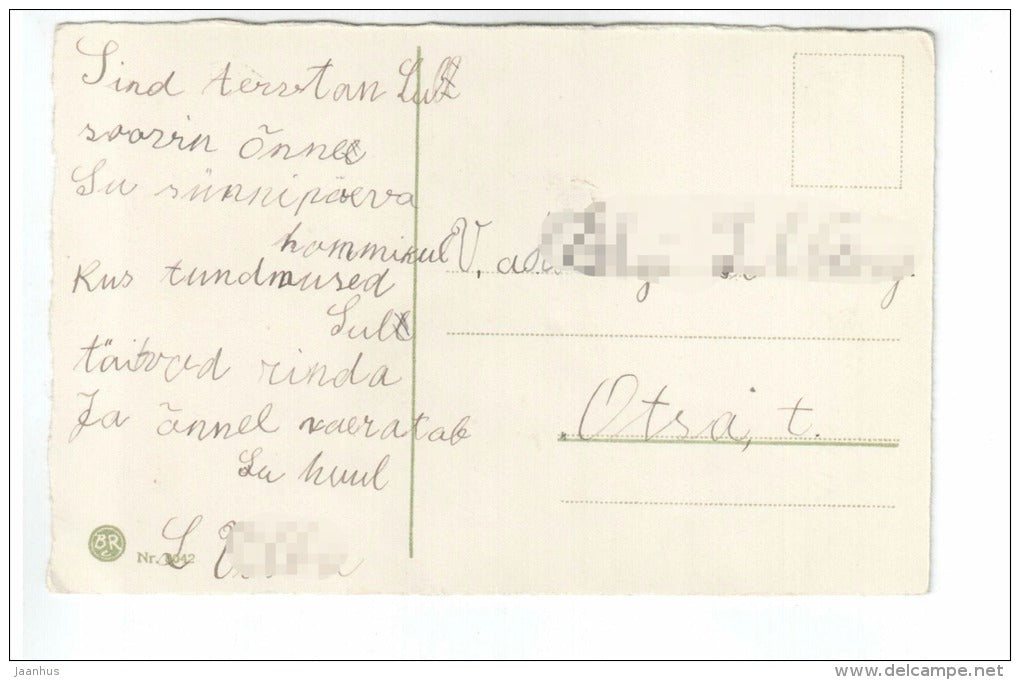 Sind tervvtan Sull
soovin õnne
Su sünnipäeva
hommikul
Kus tundmused
Sul
täitvad rinda
Ja õnnel naeratab
Su huul
L
V.
Otsa, t.
BR
Nr. 
jaanhus
www.delcampe.net